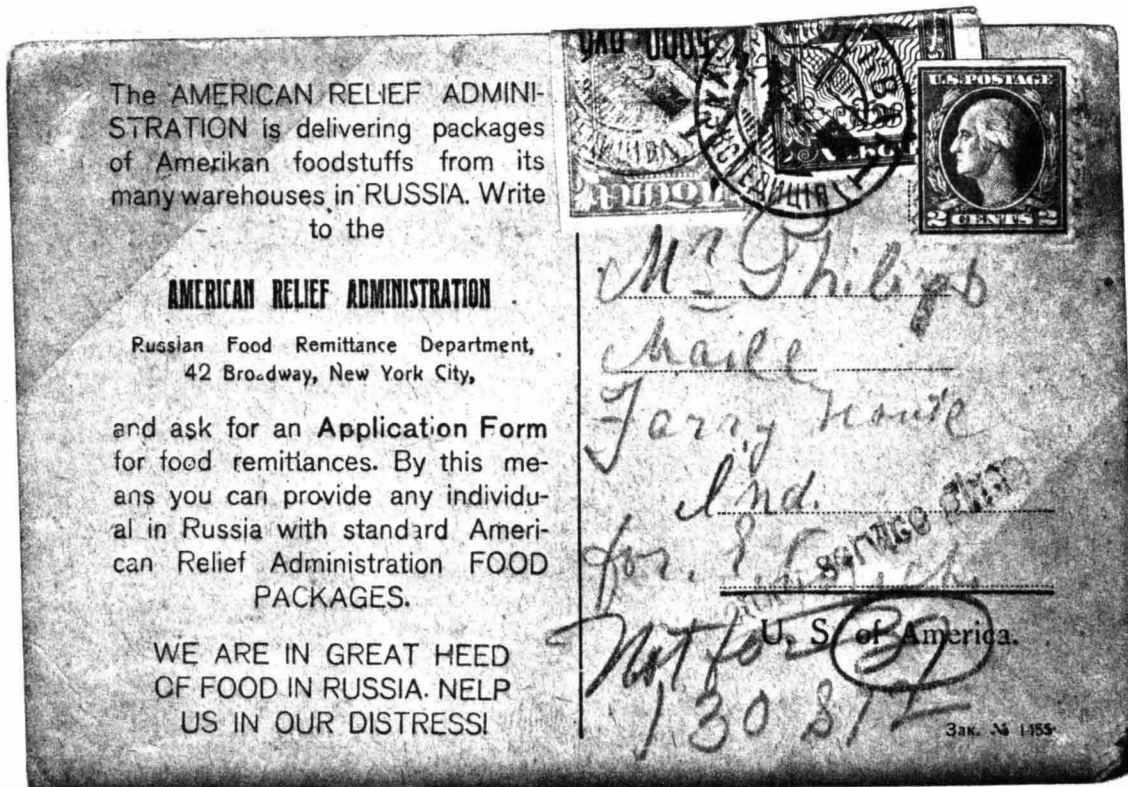 The AMERICAN RELIEF ADMINI-
STRATION is delivering packages
of Amerikan foodstuffs from its
many warehouses in RUSSIA. Write
to the
AMERICAN RELIEF ADMINISTRATION
Russian Food Remittance Department,
42 Broadway, New York City,
and ask for an Application Form
for food remittances. By this me-
ans you can provide any individu-
al in Russia with standard Ameri-
can Relief Administration FOOD
PACKAGES.
WE ARE IN GREAT HEED
OF FOOD IN RUSSIA. NELP
US IN OUR DISTRESS!
5000 РУБ
U.S. POSTAGE
2 CENTS 2
Mr Philipp
Ind.
for.
U. S. of America.
Not for 37
130 St
Зак. № 1455